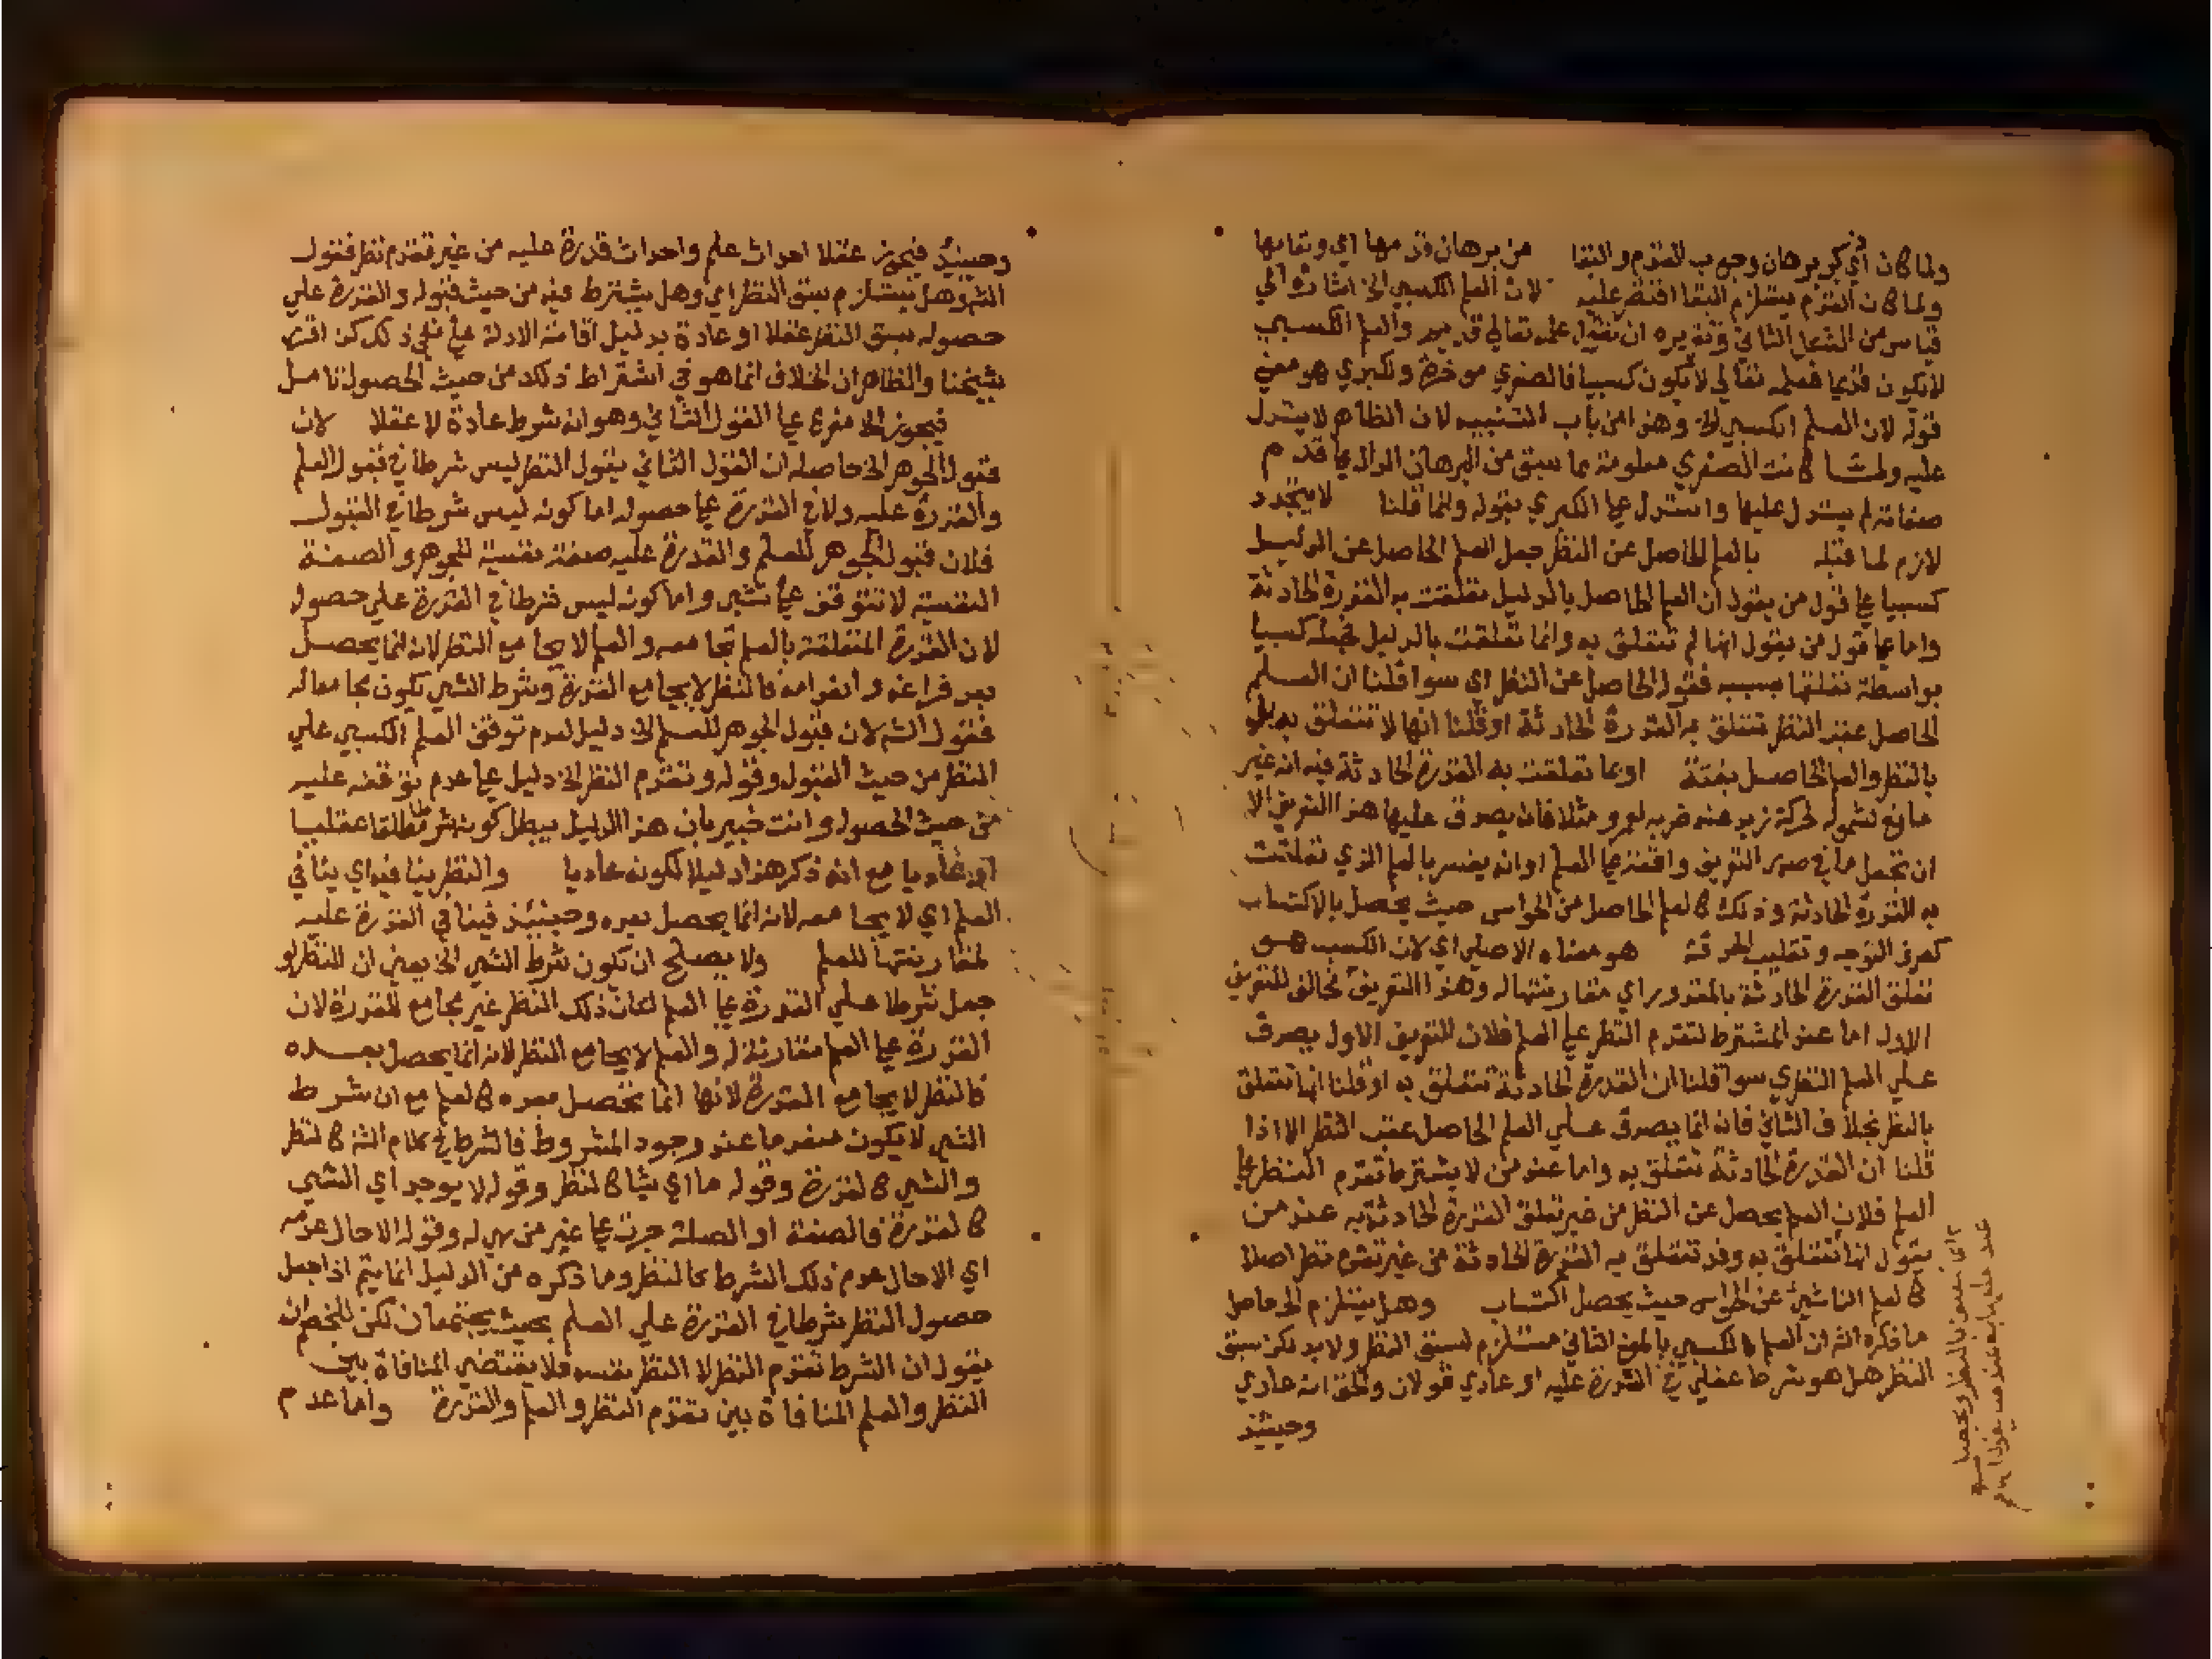 ولما كان أي ذكر برهان وجوب القدم والبقا من برهان قدمها اي وبقايها
ولما كان القدم يستلزم البقا اقتصر عليه لان العلم الكسبي الخ اشارة الي
قياس من الشكل الثاني وتقريره ان تقول علمه تعالي قديم والعلم الكسبي
لا يكون قديما فعلمه تعالي لا يكون كسبيا فالصغري موخرة والكبري هو معني
قوله لان العلم الكسبي الخ وهذا من باب التنبيه لان الظاهر لا يستدل
عليه ولما كانت الصغري معلومة مما سبق من البرهان الدال علي قدم
صفاته لم يستدل عليها واستدل علي الكبري بقوله وانما قلنا لا يتجدد
لازم لما قبله بالعلم الحاصل عن النظر جعل العلم الحاصل عن الدليل
كسبيا علي قول من يقول ان العلم الحاصل بالدليل تعلقت به القدرة الحادثة
واما علي قول من يقول انها لم تتعلق به وانما تعلقت بالدليل فجعله كسبيا
بواسطة تعلقها بسببه فقوله الحاصل عن النظر اي سوا قلنا ان العلم
الحاصل عقب النظر تتعلق به القدرة الحادثة او قلنا انها لا تتعلق به بل
بالنظر والعلم الحاصل بغتة او بما تعلقت به القدرة الحادثة فيه انه غير
مانع لشموله لحركة زيد عند ضربه لعمرو مثلا فانه يصدق عليها هذا التعريف الا
ان تجعل ما في صدر التعريف واقعة علي العلم او انه يفسر بالعلم الذي تعلقت
به القدرة الحادثة وذلك كالعلم الحاصل من الحواس حيث يحصل بالاكتساب
كصرف التوجه وتقليب الحدقة هو معناه الاصلي اي لان الكسب هو
تعلق القدرة الحادثة بالمقدور اي مقارنتها له وهذا التعريف مخالف للتعريف
الاول اما عند المشترط لتقدم النظر علي العلم فلان التعريف الاول يصدق
علي العلم النظري سوا قلنا ان القدرة الحادثة تتعلق به او قلنا انها تتعلق
بالنظر بخلاف الثاني فانه انما يصدق علي العلم الحاصل عقب النظر الا اذا
قلنا ان القدرة الحادثة تتعلق به واما عند من لا يشترط تقدم النظر علي
العلم فلان العلم يحصل عن النظر من غير تعلق القدرة الحادثة به عند من
يقول انها تتعلق به وقد تتعلق به القدرة الحادثة من غير تقدم نظر اصلا
كالعلم الناشئ عن الحواس حيث يحصل اكتساب وهل يستلزم الخ حاصل
ما ذكره الش ان العلم الكسبي بالمعني الثاني مستلزم لسبق النظر ولا بد لكن سبق
النظر هل هو شرط عقلي في القدرة عليه او عادي قولان والحق انه عادي
وحينئذ
وحينئذ فيجوز عقلا احداث علم واحداث قدرة عليه من غير تقدم نظر فقول
الش وهل يستلزم سبق النظر اي وهل يشترط فيه من حيث قبوله والقدرة علي
حصوله سبق النظر عقلا او عادة بدليل اقامته الادلة علي نفي ذلك كن اقره
شيخنا والظاهر ان الخلاف انما هو في اشتراط ذلك من حيث الحصول تامل
فيجوز الخ مفرع علي القول الثاني وهو انه شرط عادة لا عقلا لان
قبول الجوهر الخ حاصله ان القول الثاني يقول النظر ليس شرطا في قبول العلم
والقدرة عليه ولا في القدرة علي حصوله اما كونه ليس شرطا في القبول
فلان قبول الجوهر للعلم والقدرة عليه صفة نفسية للجوهر والصفة
النفسية لا تتوقف علي شئي واما كونه ليس شرطا في القدرة علي حصوله
لان القدرة المتعلقة بالعلم تجامعه والعلم لا يجامع النظر لانه انما يحصل
بعد فراغه وانصرامه فالنظر لا يجامع القدرة وشرط الشي يكون مجامعا له
فقول الش لان قبول الجوهر للعلم الخ دليل لعدم توقف العلم الكسبي علي
النظر من حيث القبول وقوله وتقدم النظر الخ دليل علي عدم توقفه عليه
من حيث الحصول وانت خبير بان هذا الدليل يبطل كونه شرطا مطلقا عقليا
او عاديا مع انه ذكر هذا دليلا لكونه عاديا والنظر ينافيه اي ينافي
العلم اي لا يجامعه لانه انما يحصل بعده وحينئذ فينافي القدرة عليه
لمقارنتها للعلم ولا يصلح ان يكون شرط الشي الخ يعني ان النظر لو
جعل شرطا علي القدرة علي العلم لكان ذلك النظر غير مجامع للقدرة لان
القدرة علي العلم مقارنة له والعلم لا يجامع النظر لانه انما يحصل بعده
فالنظر لا يجامع القدرة لانها انما تحصل بعده كالعلم مع ان شرط
الشي لا يكون منعدما عند وجود المشروط فالشرط في كلام الش كالنظر
والشي كالقدرة وقوله ما اي شيا كالنظر وقوله لا يوجد اي الشي
كالقدرة فالصفة او الصلة جرت علي غير من هي له وقوله الا حال عدمه
اي الا حال عدم ذلك الشرط كالنظر وما ذكره من الدليل انما يتم اذا جعل
حصول النظر شرطا في القدرة علي العلم بحيث يجتمعان لكن للخصم ان
يقول ان الشرط تقدم النظر لا النظر نفسه فلا يقتضي المنافاة بين
النظر والعلم المنافاة بين تقدم النظر والعلم والقدرة واما عدم